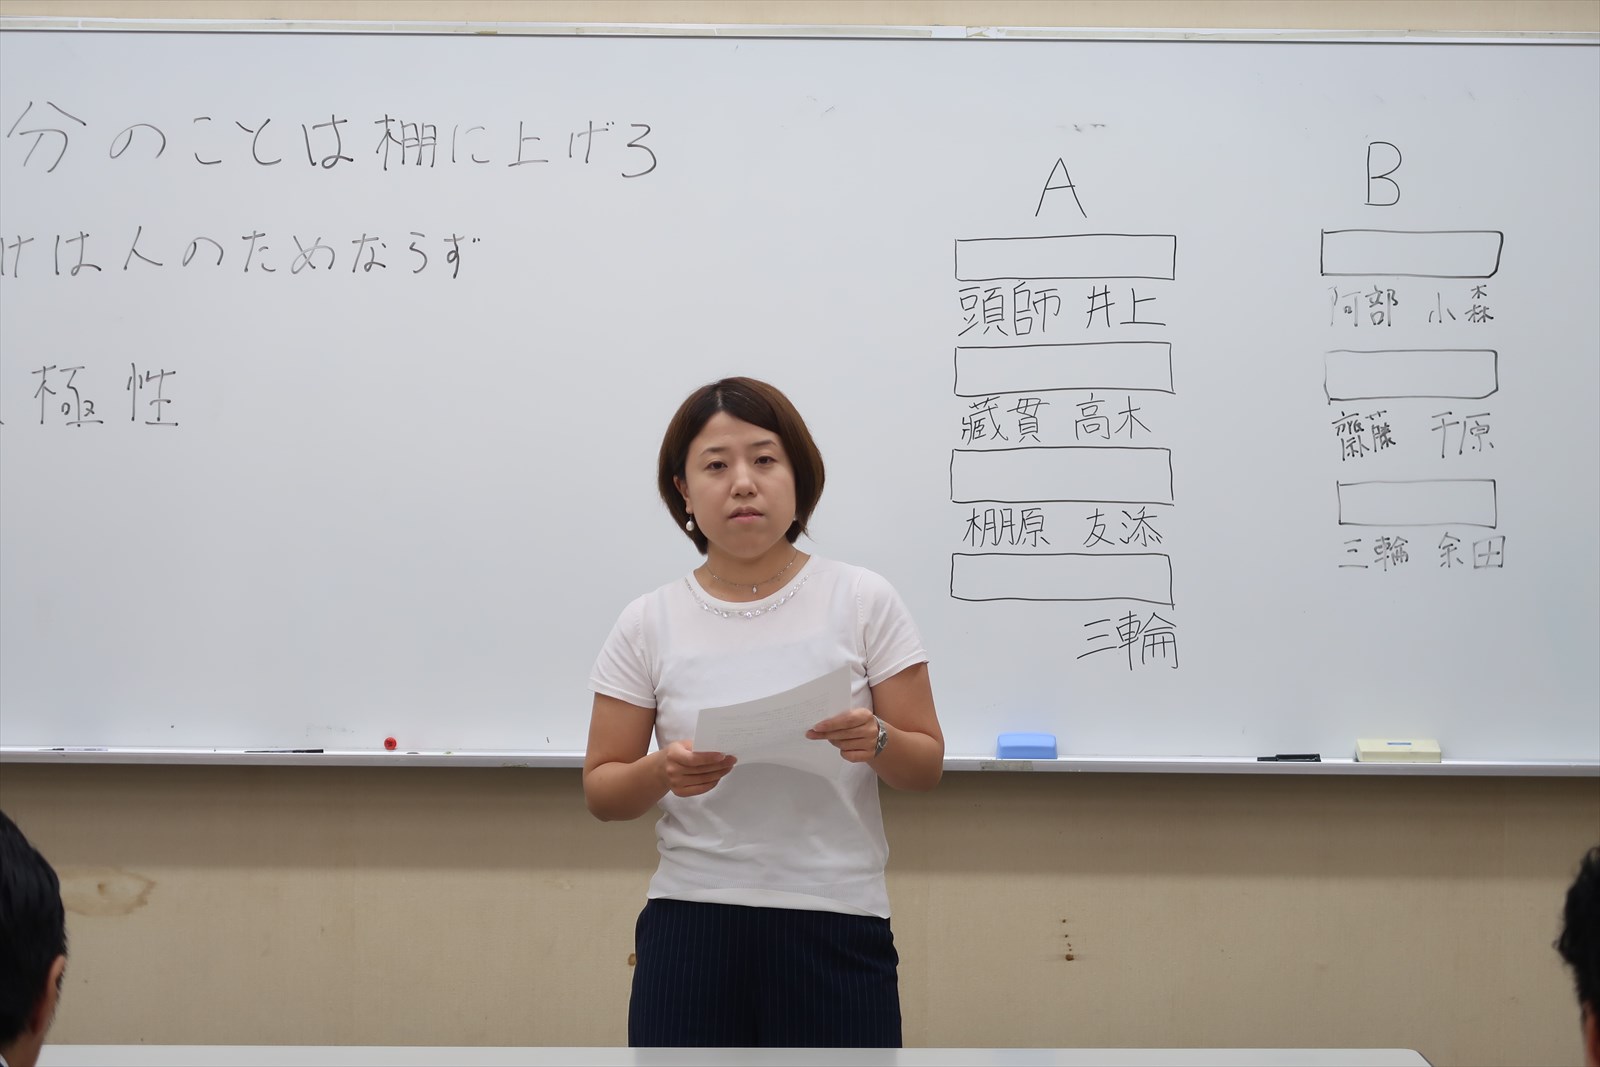 分のことは棚に上げろ
けは人のためならず
極性
A
頭師 井上
藏貫 高木
棚原 友添
三輪
B
阿部 小森
齋藤 千原
三輪 余田